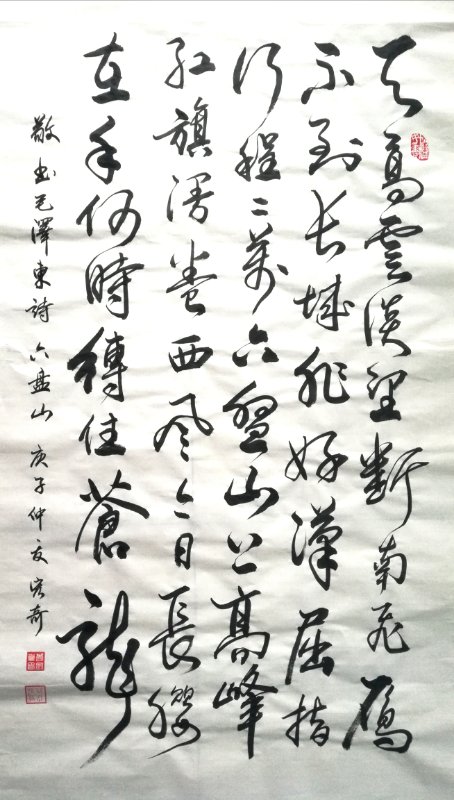 天高雲淡望断南飛雁
不到長城非好漢屈指
行程二萬六盤山上高峰
红旗漫卷西风今日長纓
在手何時縛住蒼龍
敬书毛澤東詩六盤山庚子仲夏